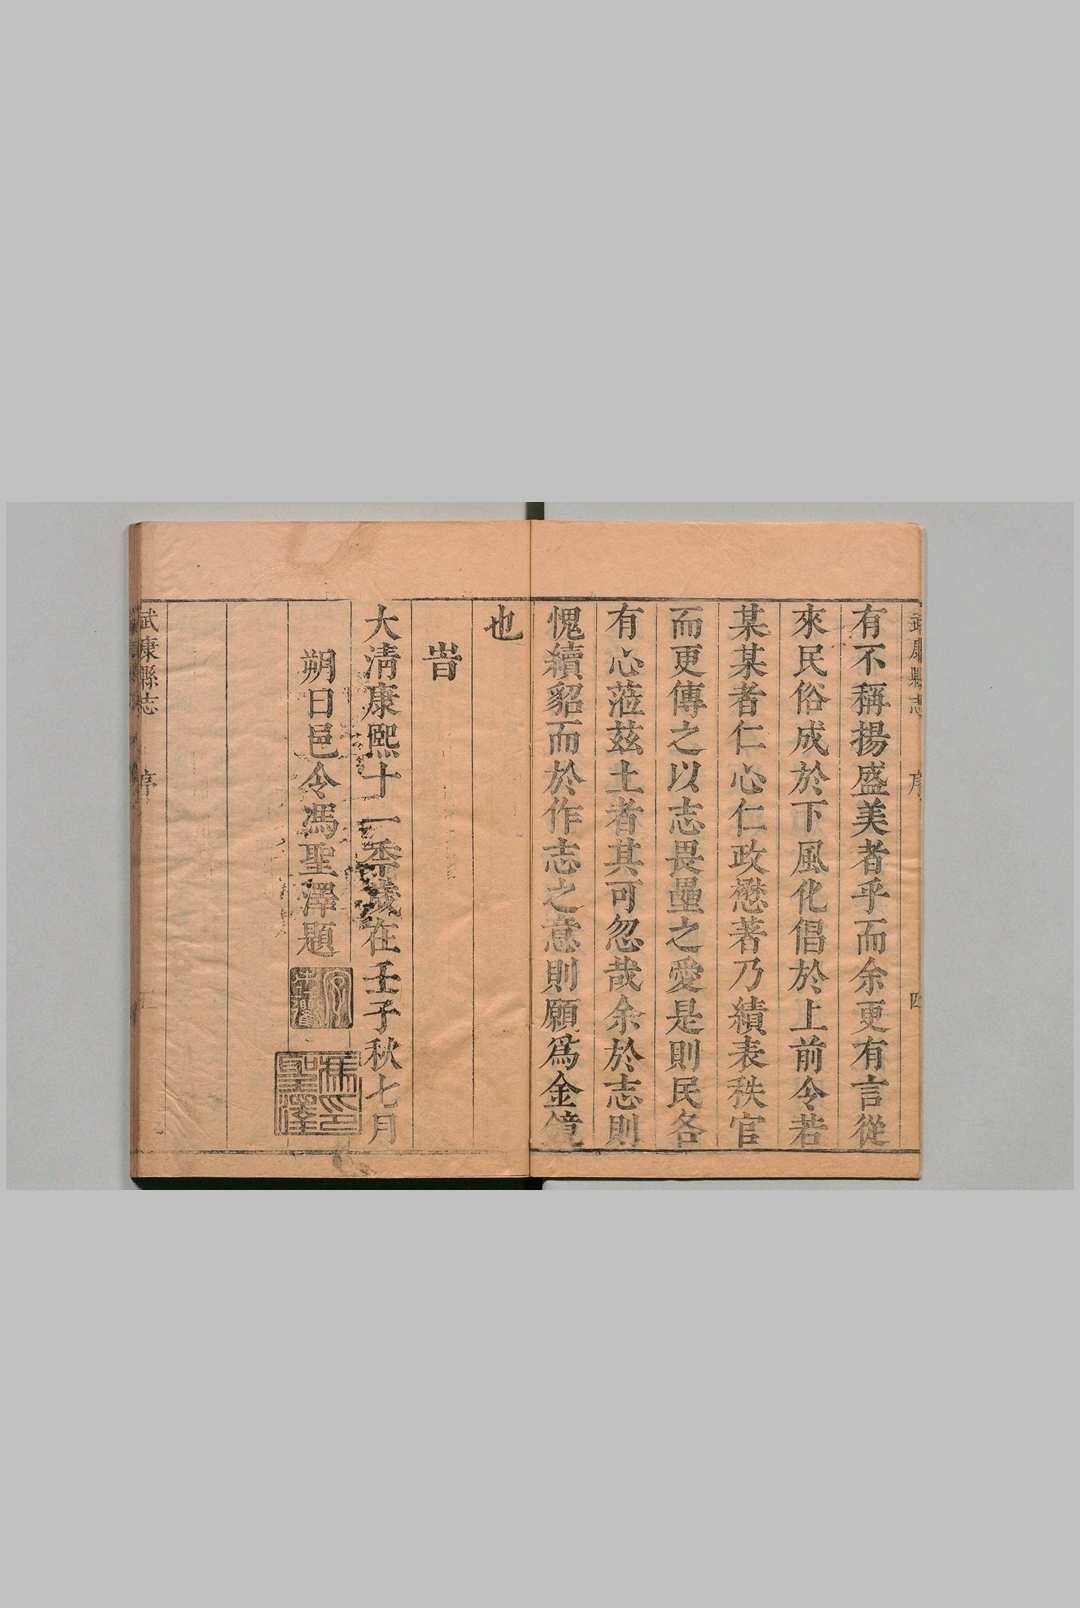 武康縣志 序 四
有不稱揚盛美者乎而余更有言從
來民俗成於下風化倡於上前令若
某某者仁心仁政懋著乃績表秩官
而更傳之以志畏壘之愛是則民各
有心蒞兹土者其可忽哉余於志則
愧續貂而於作志之意則願爲金鏡
也
旹
大淸康熙十一季歲在壬子秋七月
朔日邑令馮聖澤題
馮印聖澤
武康縣志 序 五